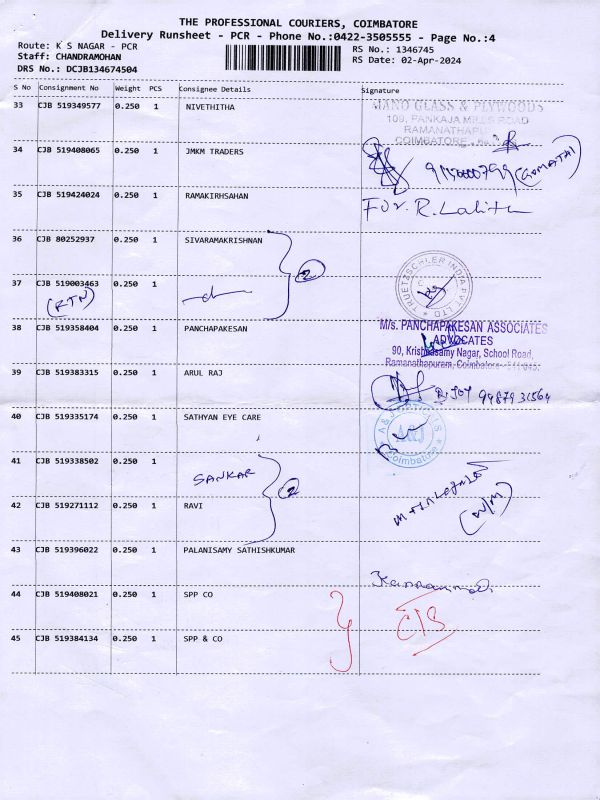 THE PROFESSIONAL COURIERS, COIMBATORE
Delivery Runsheet - PCR - Phone No.:0422-3505555 - Page No.:4
Route: K S NAGAR - PCR
Staff: CHANDRAMOHAN
DRS No.: DCJB134674504
RS No.: 1346745
RS Date: 02-Apr-2024
S No Consignment No Weight PCS Consignee Details Signature
33 CJB 519349577 0.250 1 NIVETHITHA
MANO GLASS & PLYWOODS
109, PANKAJA MILLS ROAD
RAMANATHAPU
COIMBATORE
34 CJB 519408065 0.250 1 JMKM TRADERS
(GOMATHI)
35 CJB 519424024 0.250 1 RAMAKIRHSAHAN
For. R. Lalitha
36 CJB 80252937 0.250 1 SIVARAMAKRISHNAN
2
37 CJB 519003463 0.250 1
(RTN)
TRUETZSCHLER INDIA PVT LTD
38 CJB 519358404 0.250 1 PANCHAPAKESAN
M/s. PANCHAPAKESAN ASSOCIATES
ADVOCATES
90, Krishnasamy Nagar, School Road,
Ramanathapuram, Coimbatore
39 CJB 519383315 0.250 1 ARUL RAJ
40 CJB 519335174 0.250 1 SATHYAN EYE CARE
A&J
Coimbatore
41 CJB 519338502 0.250 1
SANKAR
2
42 CJB 519271112 0.250 1 RAVI
43 CJB 519396022 0.250 1 PALANISAMY SATHISHKUMAR
44 CJB 519408021 0.250 1 SPP CO
45 CJB 519384134 0.250 1 SPP & CO